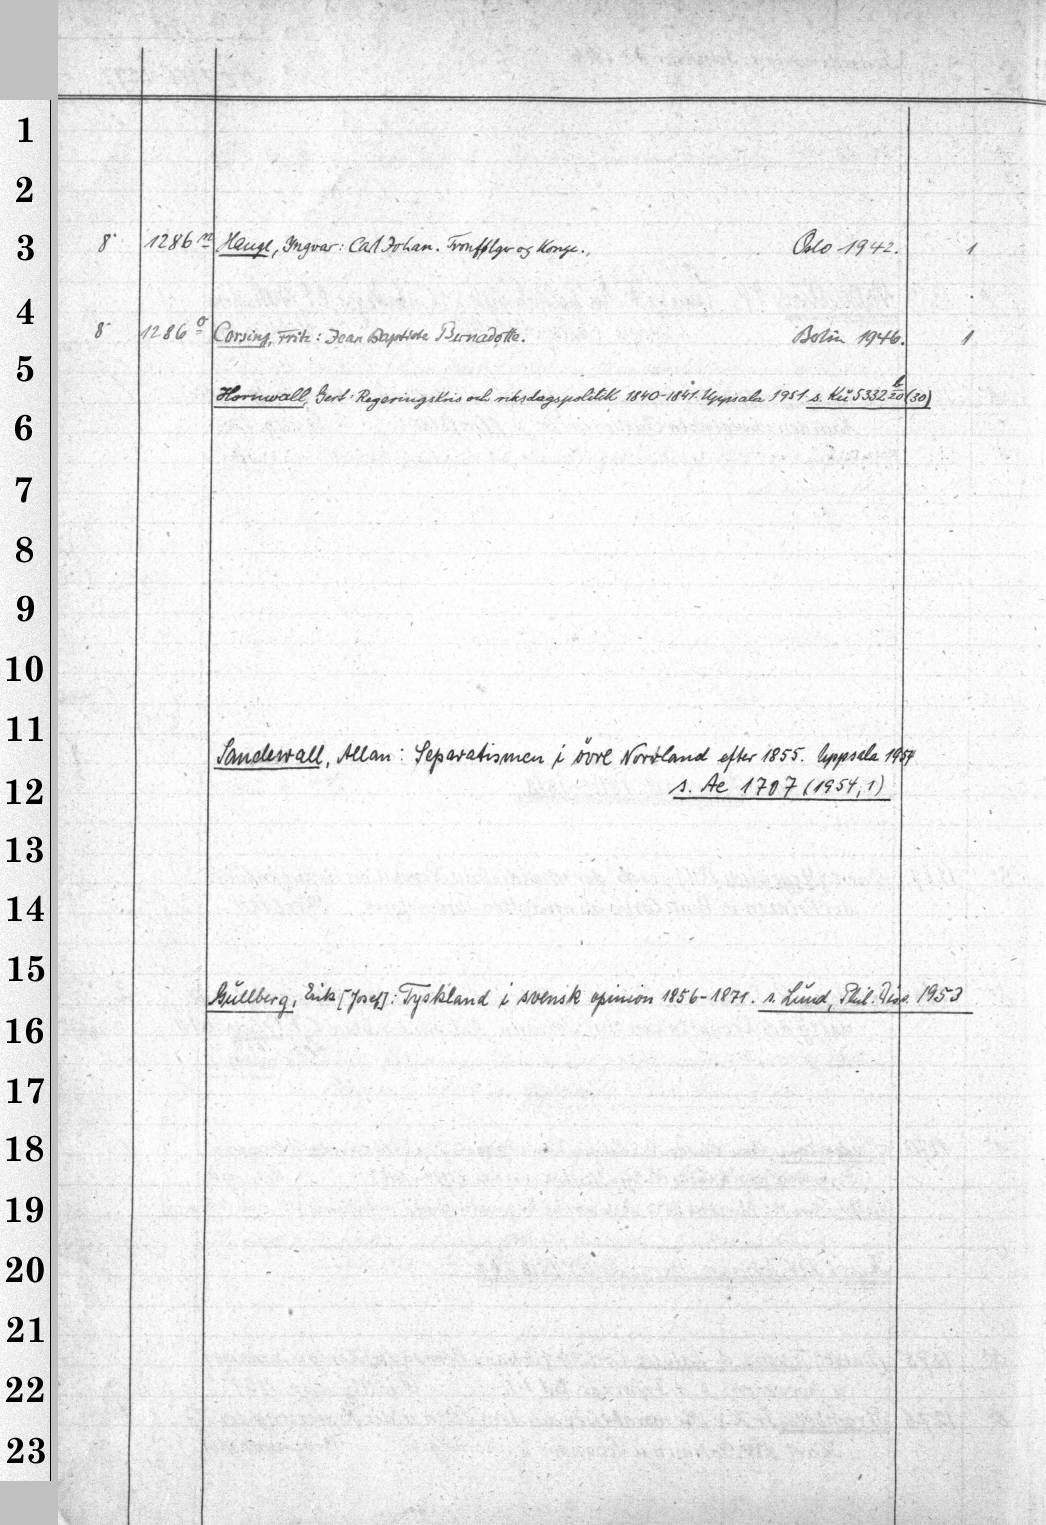 1
2
3
8° 1286 n Hauge, Yngvar: Carl Johan. Tronfølger og Konge. Oslo 1942. 1
4
8° 1286 o Corsing, Fritz: Jean Baptiste Bernadotte. Berlin 1946. 1
5
Hornwall, Gert: Regeringskris och riksdagspolitik 1840-1841. Uppsala 1951 s. Kü 5332 b/20 (30)
6
7
8
9
10
11
Sandewall, Allan: Separatismen i övre Norrland efter 1855. Uppsala 1954
12
s. Ae 1707 (1954, 1)
13
14
15
Gullberg, Erik [Josef]: Tyskland i svensk opinion 1856-1871. s. Lund, Phil. Diss. 1953
16
17
18
19
20
21
22
23